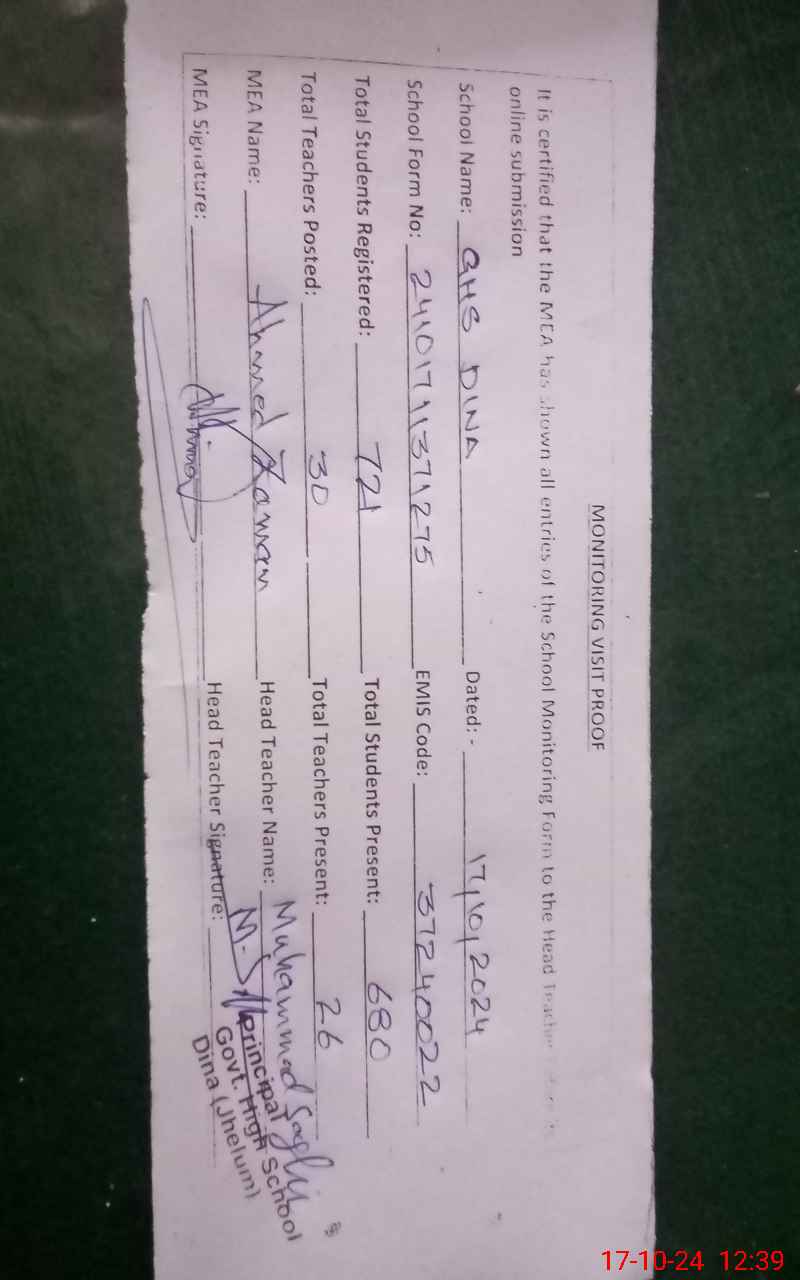 MONITORING VISIT PROOF
It is certified that the MEA has shown all entries of the School Monitoring Form to the Head Teacher
online submission
School Name: GHS DINA Dated: - 17/10/2024
School Form No: EMIS Code: 37240022
Total Students Registered: 721 Total Students Present: 680
Total Teachers Posted: 30 Total Teachers Present: 26
MEA Name: Ahamed Zaman Head Teacher Name: Muhammad
MEA Signature: Head Teacher Signature:
Principal
Govt. High School
Dina (Jhelum)
17-10-24 12:39